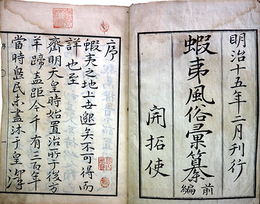 明治十五年二月刊行
蝦夷風俗彙纂 前編
開拓使
序
蝦夷之地上世邈矣不可得而
詳也至
齊明天皇時始置治所於後方
羊蹄蓋距今千有二百年
當時夷民未盡沐于皇澤